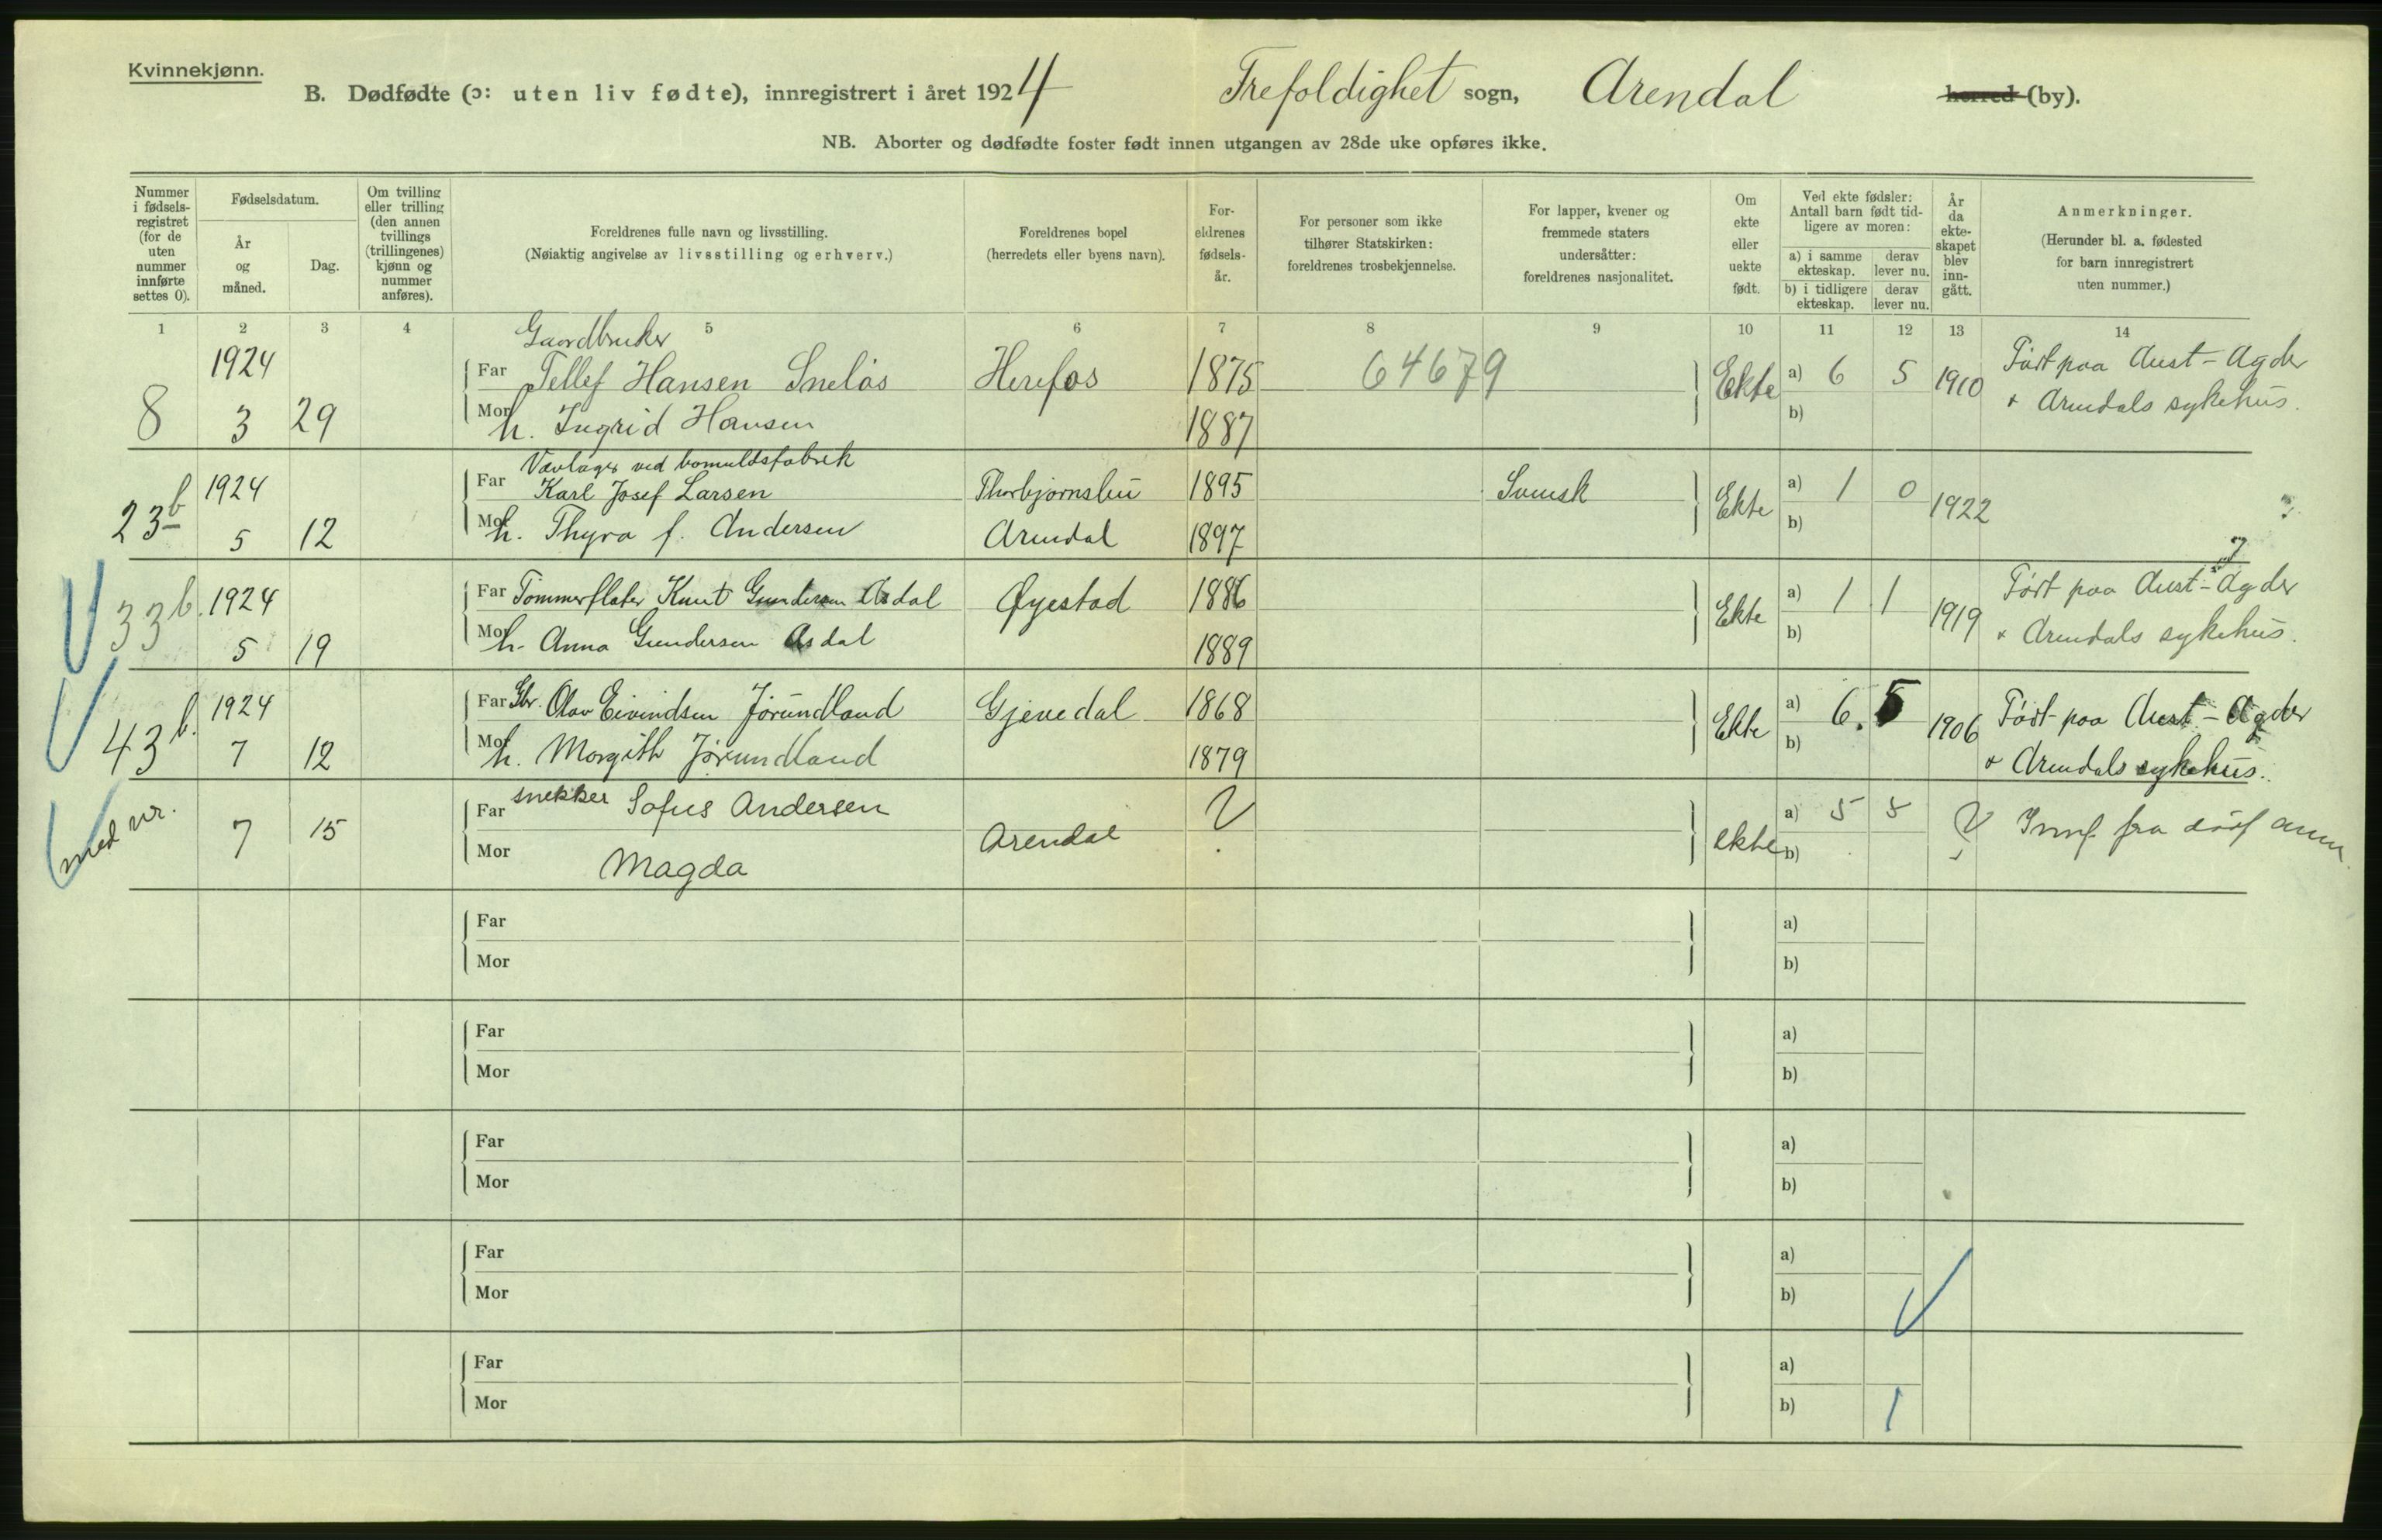 Kvinnekjønn.
B. Dødfødte (ɔ: uten liv fødte), innregistrert i året 1924 Trefoldighet sogn, Arendal herred (by).
NB. Aborter og dødfødte foster født innen utgangen av 28de uke opføres ikke.
Nummer i fødselsregistret (for de uten nummer innførte settes 0).
Fødselsdatum.
År og måned.
Dag.
Om tvilling eller trilling (den annen tvillings (trillingenes) kjønn og nummer anføres).
Foreldrenes fulle navn og livsstilling.
(Nøiaktig angivelse av livsstilling og erhverv.)
Foreldrenes bopel
(herredets eller byens navn).
Foreldrenes fødselsår.
For personer som ikke tilhører Statskirken: foreldrenes trosbekjennelse.
For lapper, kvener og fremmede staters undersåtter: foreldrenes nasjonalitet.
Om ekte eller uekte født.
Ved ekte fødsler: Antall barn født tidligere av moren:
a) i samme ekteskap. derav lever nu.
b) i tidligere ekteskap. derav lever nu.
År da ekteskapet blev inngått.
Anmerkninger.
(Herunder bl. a. fødested for barn innregistrert uten nummer.)
1 2 3 4 5 6 7 8 9 10 11 12 13 14
Gaardbruker
1924 Far Tellef Hansen Sneløs Herefos 1875 64679 Ekte a) 6 5 1910 Født paa Aust-Agder
8 3 29 Mor h. Ingrid Hansen 1887 b) + Arendals sykehus.
ved bomuldsfabrik
23b 1924 Far Karl Josef Larsen Thorbjørnsbu 1895 Svensk Ekte a) 1 0 1922
5 12 Mor h. Thyra f. Andersen Arendal 1897 b)
33b. 1924 Far Tømmerfløter Knut Gundersen Asdal Øyestad 1886 Ekte a) 1 1 1919 Født paa Aust-Agder
5 19 Mor h. Anna Gundersen Asdal 1889 b) + Arendals sykehus.
43b. 1924 Far Gbr. Olav Eivindsen Jørundland Gjevedal 1868 Ekte a) 6. 5 1906 Født paa Aust-Agder
7 12 Mor h. Margith Jørundland 1879 b) + Arendals sykehus.
med nr. 7 15 Far snekker Sofus Andersen Arendal ekte a) 5 5 Innf. fra
Mor Magda b)
Far a)
Mor b)
Far a)
Mor b)
Far a)
Mor b)
Far a)
Mor b)
Far a)
Mor b) 1